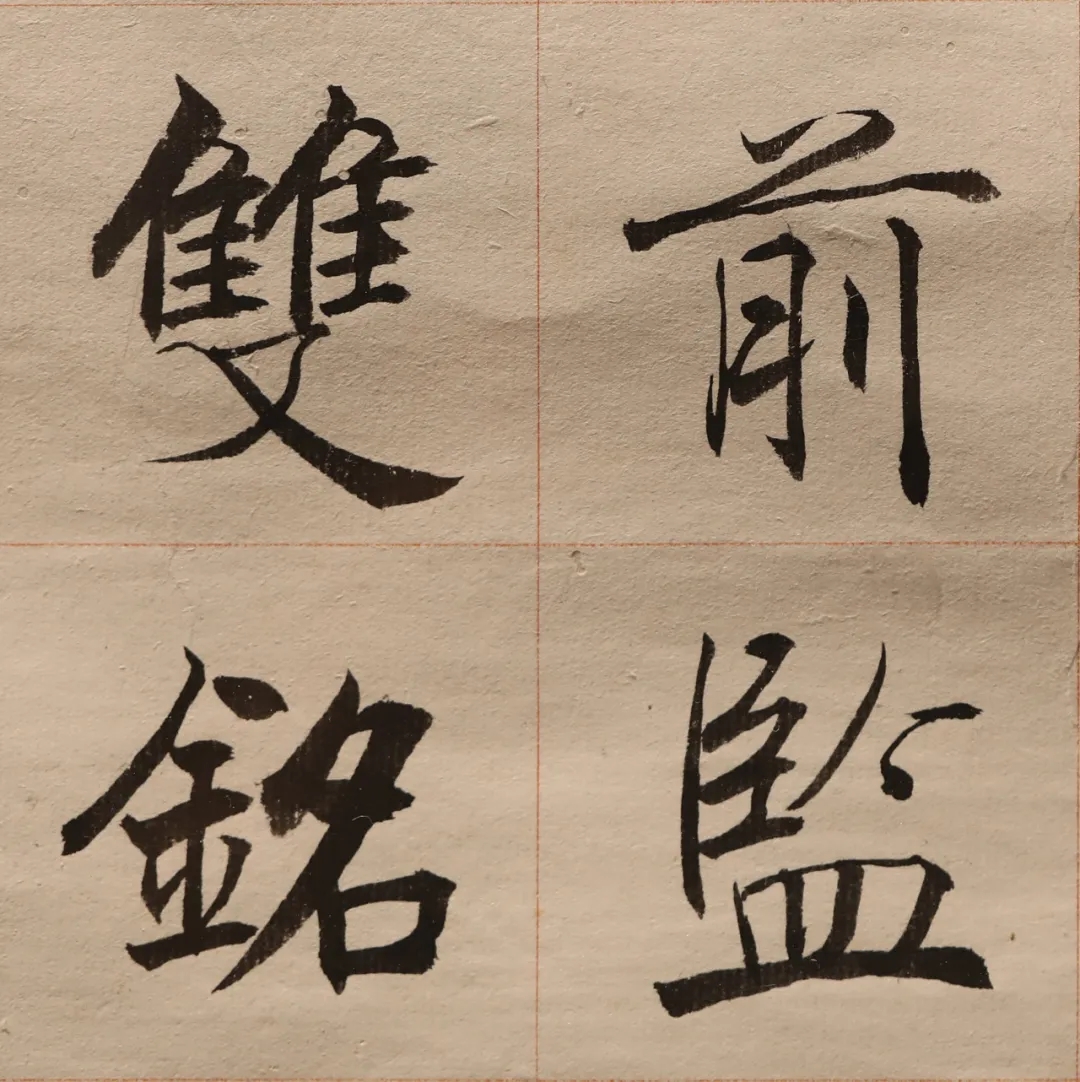 前監
雙銘